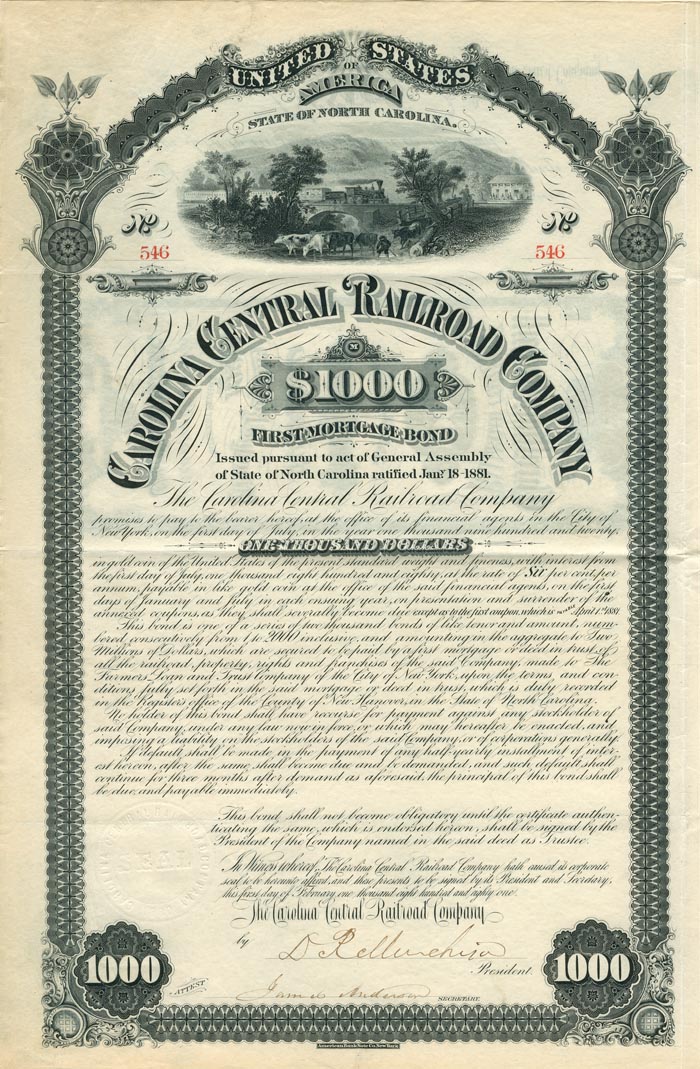 UNITED STATES
OF
AMERICA
STATE OF NORTH CAROLINA.
No No
546 546
CAROLINA CENTRAL RAILROAD COMPANY
M
$1000
FIRST MORTGAGE BOND
Issued pursuant to act of General Assembly
of State of North Carolina ratified Jany. 18-1881.
The Carolina Central Railroad Company
promises to pay to the bearer hereof, at the office of its financial agents in the City of
New York, on the first day of July, in the year one thousand nine hundred and twenty,
ONE THOUSAND DOLLARS
in gold coin of the United States of the present standard weight and fineness, with interest from
the first day of July, one thousand eight hundred and eighty, at the rate of Six per cent, per
annum, payable in like gold coin at the office of the said financial agents, on the first
days of January and July in each ensuing year, on presentation and surrender of the
annexed coupons, as they shall severally become due except as to the first coupon, which is April 1st 1881
This bond is one of a series of two thousand bonds of like tenor and amount, num-
bered consecutively from 1 to 2000 inclusive, and amounting in the aggregate to Two
Millions of Dollars, which are secured to be paid by a first mortgage or deed in trust, of
all the railroad, property, rights and franchises of the said Company, made to The
Farmers Loan and Trust Company of the City of New York, upon the terms, and con-
ditions fully set forth in the said mortgage or deed in trust, which is duly recorded
in the Registers office of the County of New Hanover, in the State of North Carolina.
No holder of this bond shall have recourse for payment against any stockholder of
said Company, under any law now in force, or which may hereafter be enacted, and
imposing a liability on the stockholders of the said Company, or of corporations generally.
If default shall be made, in the payment of any half yearly installment of inter-
est hereon, after the same shall become due and be demanded, and such default shall
continue for three months after demand as aforesaid, the principal of this bond shall
be due and payable immediately.
This bond, shall not become obligatory until the certificate authen-
ticating the same, which is endorsed hereon, shall be signed by the
President of the Company named in the said deed as Trustee.
In Witness whereof, The Carolina Central Railroad Company hath caused its corporate
seal to be hereunto affixed, and these presents to be signed by its President and Secretary,
this first day of February, one thousand eight hundred and eighty one.
The Carolina Central Railroad Company
by D R Murchison
President.
ATTEST
James Anderson SECRETARY
1000 1000
American Bank Note Co. New York